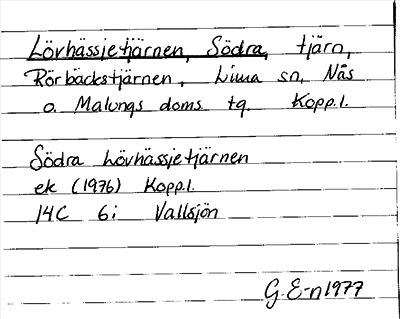 Lövhässjetjärnen, Södra, tjärn,
Rörbäckstjärnen, Lima sn, Nås
o. Malungs doms. tg. Kopp.l.
Södra Lövhässjetjärnen
ek (1976) Kopp.l.
14C 6i Vallsjön
G.E-n 1977